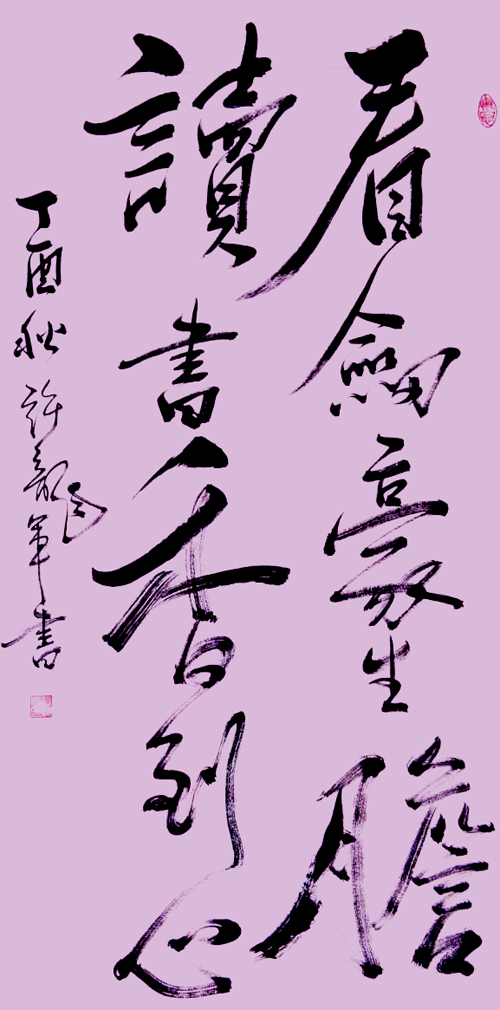 看劍豪生膽
讀書香到心
丁酉秋許龍軍書